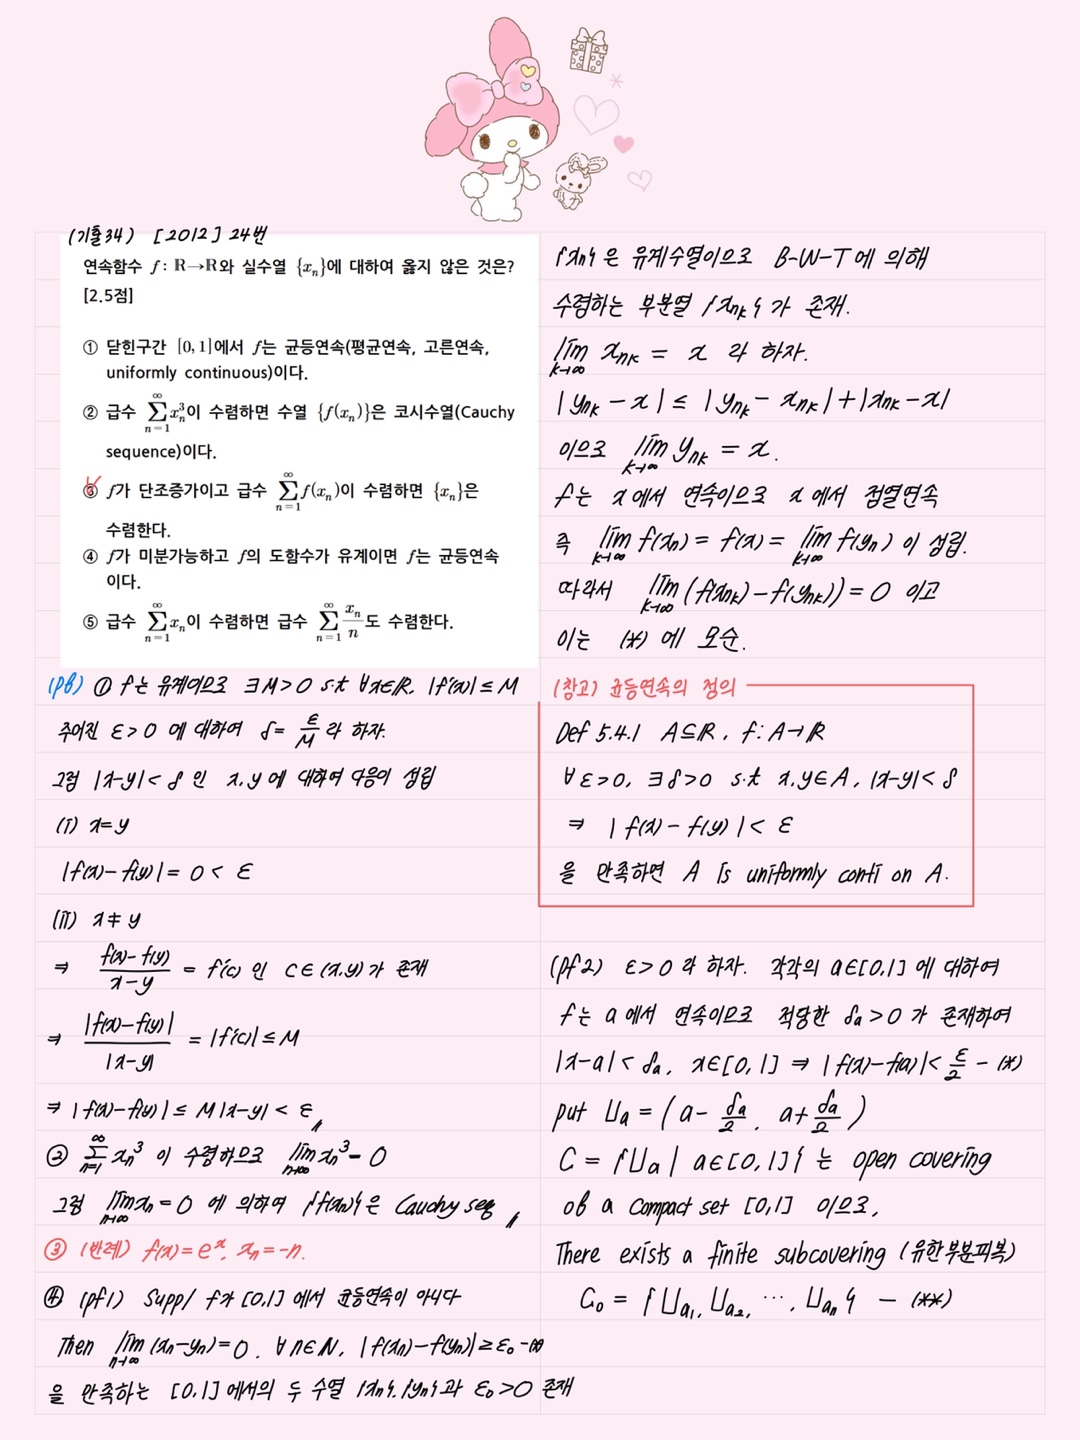 (기출34) [2012] 24번
연속함수 f : ℝ→ℝ와 실수열 {xₙ}에 대하여 옳지 않은 것은?
[2.5점]
① 닫힌구간 [0, 1]에서 f는 균등연속(평균연속, 고른연속,
uniformly continuous)이다.
② 급수 ∑_{n=1}^{∞} xₙ³이 수렴하면 수열 {f(xₙ)}은 코시수열(Cauchy
sequence)이다.
③ f가 단조증가이고 급수 ∑_{n=1}^{∞} f(xₙ)이 수렴하면 {xₙ}은
수렴한다.
④ f가 미분가능하고 f의 도함수가 유계이면 f는 균등연속
이다.
⑤ 급수 ∑_{n=1}^{∞} xₙ이 수렴하면 급수 ∑_{n=1}^{∞} xₙ/n도 수렴한다.
(pf) ① f는 유계이므로 ∃M>0 s.t ∀x∈ℝ, |f'(x)| ≤ M
주어진 ε>0 에 대하여 δ = ε/M 라 하자.
그럼 |x-y| < δ 인 x, y에 대하여 다음이 성립
(i) x=y
|f(x)-f(y)| = 0 < ε
(ii) x≠y
⇒ (f(x)-f(y))/(x-y) = f'(c) 인 c∈(x,y)가 존재
⇒ |f(x)-f(y)|/|x-y| = |f'(c)| ≤ M
⇒ |f(x)-f(y)| ≤ M|x-y| < ε //
② ∑_{n=1}^{∞} xₙ³ 이 수렴하므로 lim_{n→∞} xₙ³ = 0
그럼 lim_{n→∞} xₙ = 0 에 의하여 {f(xₙ)}은 Cauchy seq //
③ (반례) f(x) = eˣ, xₙ = -n.
④ (pf1) Supp/ f가 [0,1] 에서 균등연속이 아니다
Then lim_{n→∞} (xₙ-yₙ)=0, ∀n∈ℕ, |f(xₙ)-f(yₙ)| ≥ ε₀ -(*)
을 만족하는 [0,1] 에서의 두 수열 {xₙ}, {yₙ}과 ε₀>0 존재
{xₙ}은 유계수열이므로 B-W-T에 의해
수렴하는 부분열 {x_{nk}}가 존재.
lim_{k→∞} x_{nk} = x 라 하자.
|y_{nk} - x| ≤ |y_{nk} - x_{nk}| + |x_{nk} - x|
이므로 lim_{k→∞} y_{nk} = x.
f는 x에서 연속이므로 x에서 점열연속
즉 lim_{k→∞} f(xₙ) = f(x) = lim_{k→∞} f(yₙ) 이 성립.
따라서 lim_{k→∞} (f(x_{nk}) - f(y_{nk})) = 0 이고
이는 (*)에 모순.
(참고) 균등연속의 정의
Def 5.4.1 A⊆ℝ, f: A→ℝ
∀ε>0, ∃δ>0 s.t x,y∈A, |x-y| < δ
⇒ |f(x) - f(y)| < ε
을 만족하면 A is uniformly conti on A.
(pf2) ε>0 라 하자. 각각의 a∈[0,1] 에 대하여
f는 a에서 연속이므로 적당한 δₐ>0 가 존재하여
|x-a| < δₐ, x∈[0,1] ⇒ |f(x)-f(a)| < ε/2 - (*)
put Uₐ = (a - δₐ/2, a + δₐ/2)
C = {Uₐ | a∈[0,1]} 는 open covering
of a compact set [0,1] 이므로,
There exists a finite subcovering (유한부분피복)
C₀ = {U_{a₁}, U_{a₂}, ⋯, U_{aₙ}} - (**)